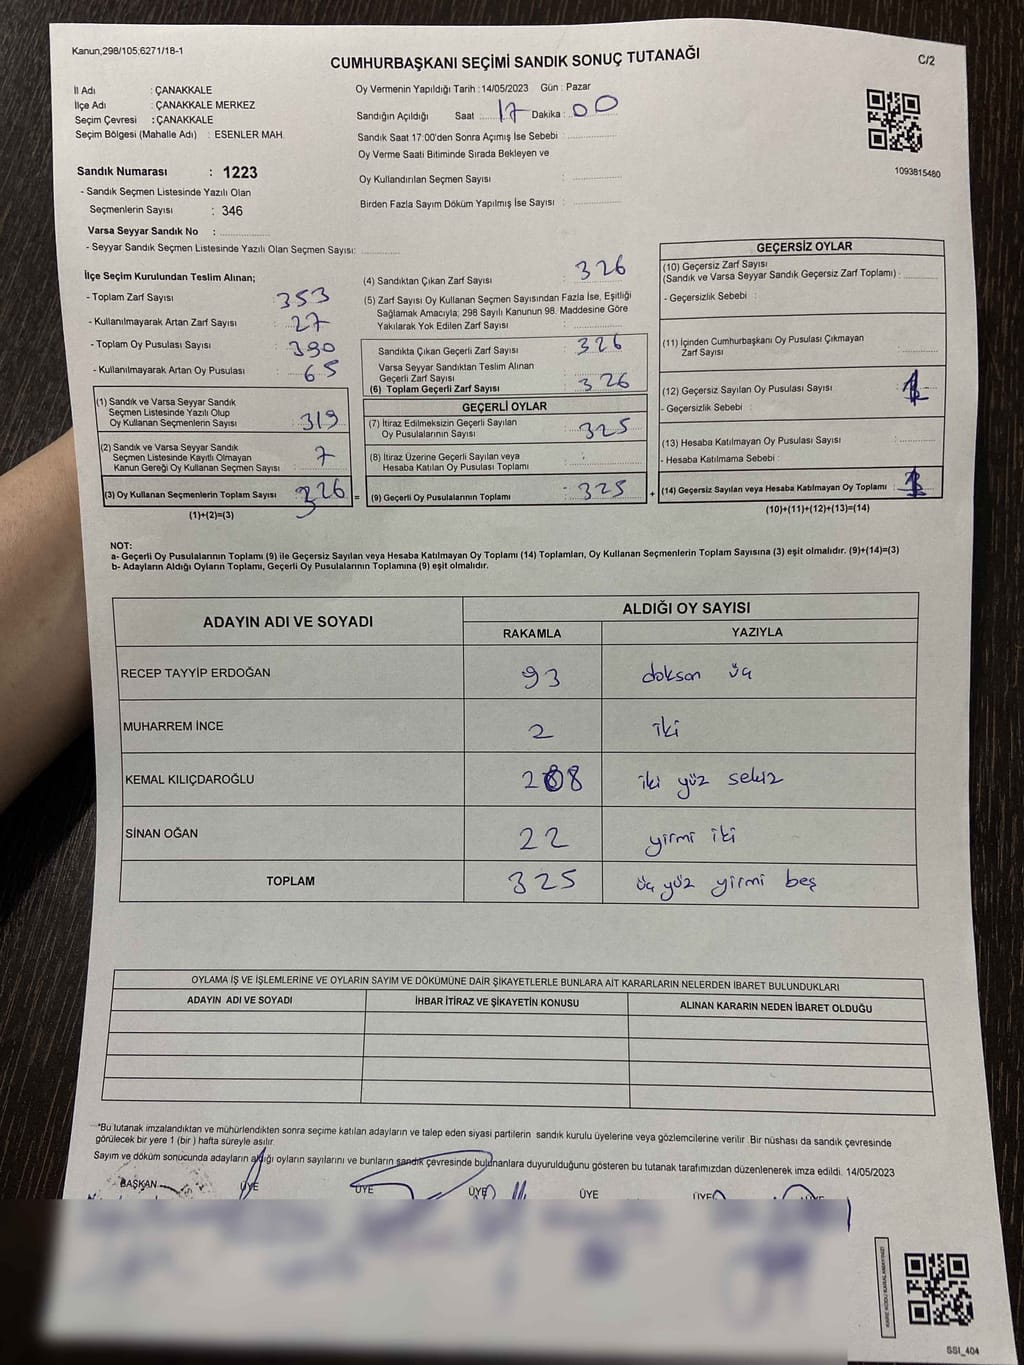 Kanun,298/105,6271/18-1
CUMHURBAŞKANI SEÇİMİ SANDIK SONUÇ TUTANAĞI
C/2
İl Adı : ÇANAKKALE
İlçe Adı : ÇANAKKALE MERKEZ
Seçim Çevresi : ÇANAKKALE
Seçim Bölgesi (Mahalle Adı) : ESENLER MAH.
Sandık Numarası : 1223
- Sandık Seçmen Listesinde Yazılı Olan
Seçmenlerin Sayısı : 346
Varsa Seyyar Sandık No :
- Seyyar Sandık Seçmen Listesinde Yazılı Olan Seçmen Sayısı:
Oy Vermenin Yapıldığı Tarih :14/05/2023 Gün : Pazar
Sandığın Açıldığı Saat 17 Dakika : 00
Sandık Saat 17:00'den Sonra Açımış İse Sebebi :
Oy Verme Saati Bitiminde Sırada Bekleyen ve
Oy Kullandırılan Seçmen Sayısı :
Birden Fazla Sayım Döküm Yapılmış İse Sayısı :
1093815480
İlçe Seçim Kurulundan Teslim Alınan;
- Toplam Zarf Sayısı : 353
- Kullanılmayarak Artan Zarf Sayısı : 27
- Toplam Oy Pusulası Sayısı : 390
- Kullanılmayarak Artan Oy Pusulası : 65
(1) Sandık ve Varsa Seyyar Sandık
Seçmen Listesinde Yazılı Olup
Oy Kullanan Seçmenlerin Sayısı : 319
(2) Sandık ve Varsa Seyyar Sandık
Seçmen Listesinde Kayıtlı Olmayan
Kanun Gereği Oy Kullanan Seçmen Sayısı : 7
(3) Oy Kullanan Seçmenlerin Toplam Sayısı 326 =
(1)+(2)=(3)
(4) Sandıktan Çıkan Zarf Sayısı : 326
(5) Zarf Sayısı Oy Kullanan Seçmen Sayısından Fazla İse, Eşitliği
Sağlamak Amacıyla; 298 Sayılı Kanunun 98. Maddesine Göre
Yakılarak Yok Edilen Zarf Sayısı :
Sandıkta Çıkan Geçerli Zarf Sayısı : 326
Varsa Seyyar Sandıktan Teslim Alınan
Geçerli Zarf Sayısı :
(6) Toplam Geçerli Zarf Sayısı 326
GEÇERLİ OYLAR
(7) İtiraz Edilmeksizin Geçerli Sayılan
Oy Pusulalarının Sayısı : 325
(8) İtiraz Üzerine Geçerli Sayılan veya
Hesaba Katılan Oy Pusulası Toplamı :
(9) Geçerli Oy Pusulalarının Toplamı : 325 +
GEÇERSİZ OYLAR
(10) Geçersiz Zarf Sayısı
(Sandık ve Varsa Seyyar Sandık Geçersiz Zarf Toplamı) :
- Geçersizlik Sebebi :
(11) İçinden Cumhurbaşkanı Oy Pusulası Çıkmayan
Zarf Sayısı :
(12) Geçersiz Sayılan Oy Pusulası Sayısı : 1
- Geçersizlik Sebebi :
(13) Hesaba Katılmayan Oy Pusulası Sayısı :
- Hesaba Katılmama Sebebi :
(14) Geçersiz Sayılan veya Hesaba Katılmayan Oy Toplamı : 1
(10)+(11)+(12)+(13)=(14)
NOT:
a- Geçerli Oy Pusulalarının Toplamı (9) ile Geçersiz Sayılan veya Hesaba Katılmayan Oy Toplamı (14) Toplamları, Oy Kullanan Seçmenlerin Toplam Sayısına (3) eşit olmalıdır. (9)+(14)=(3)
b- Adayların Aldığı Oyların Toplamı, Geçerli Oy Pusulalarının Toplamına (9) eşit olmalıdır.
ADAYIN ADI VE SOYADI ALDIĞI OY SAYISI
RAKAMLA YAZIYLA
RECEP TAYYİP ERDOĞAN 93 doksan üç
MUHARREM İNCE 2 iki
KEMAL KILIÇDAROĞLU 208 iki yüz sekiz
SİNAN OĞAN 22 yirmi iki
TOPLAM 325 üç yüz yirmi beş
OYLAMA İŞ VE İŞLEMLERİNE VE OYLARIN SAYIM VE DÖKÜMÜNE DAİR ŞİKAYETLERLE BUNLARA AİT KARARLARIN NELERDEN İBARET BULUNDUKLARI
ADAYIN ADI VE SOYADI İHBAR İTİRAZ VE ŞİKAYETİN KONUSU ALINAN KARARIN NEDEN İBARET OLDUĞU
*Bu tutanak imzalandıktan ve mühürlendikten sonra seçime katılan adayların ve talep eden siyasi partilerin sandık kurulu üyelerine veya gözlemcilerine verilir. Bir nüshası da sandık çevresinde
görülecek bir yere 1 (bir) hafta süreyle asılır.
Sayım ve döküm sonucunda adayların aldığı oyların sayılarını ve bunların sandık çevresinde bulunanlara duyurulduğunu gösteren bu tutanak tarafımızdan düzenlenerek imza edildi. 14/05/2023
BAŞKAN ÜYE ÜYE ÜYE ÜYE ÜYE ÜYE
KARE KODU KARALAMAYINIZ!
SSI_404